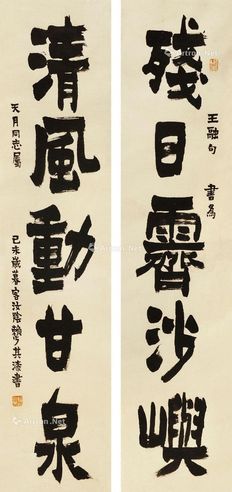 殘日霽沙嶼
王融句 書為
清風動甘泉
天月同志屬
己未歲暮客汝陰賴少其漆書
Artron.Net